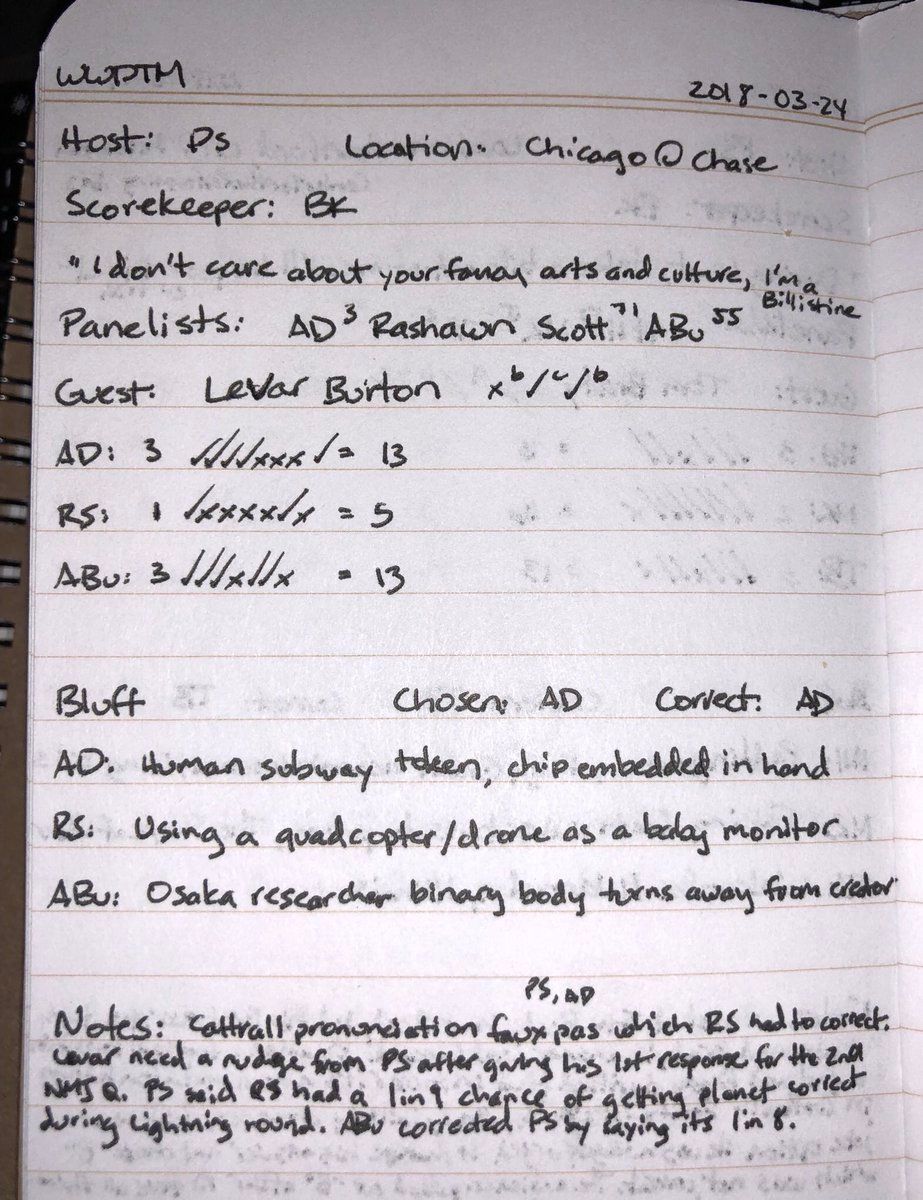 WWDTM 2018-03-24
Host: PS Location: Chicago @ Chase
Scorekeeper: BK
"I don't care about your fancy arts and culture, I'm a
Billistine
Panelists: AD 3 Rashawn Scott 71 ABu 55
Guest: LeVar Burton x b/c/b
AD: 3 ✓✓✓✓xxx✓ = 13
RS: 1 ✓xxxx✓x = 5
ABu: 3 ✓✓✓x✓✓x = 13
Bluff Chosen: AD Correct: AD
AD: Human subway token, chip embedded in hand
RS: Using a quadcopter/drone as a baby monitor
ABu: Osaka researcher binary body turns away from creator
PS, AD
Notes: Cattrall pronunciation faux pas which RS had to correct.
Levar need a nudge from PS after giving his 1st response for the 2nd
NMJ Q. PS said RS had a 1 in 9 chance of getting planet correct
during Lightning round. ABu corrected PS by saying its 1 in 8.